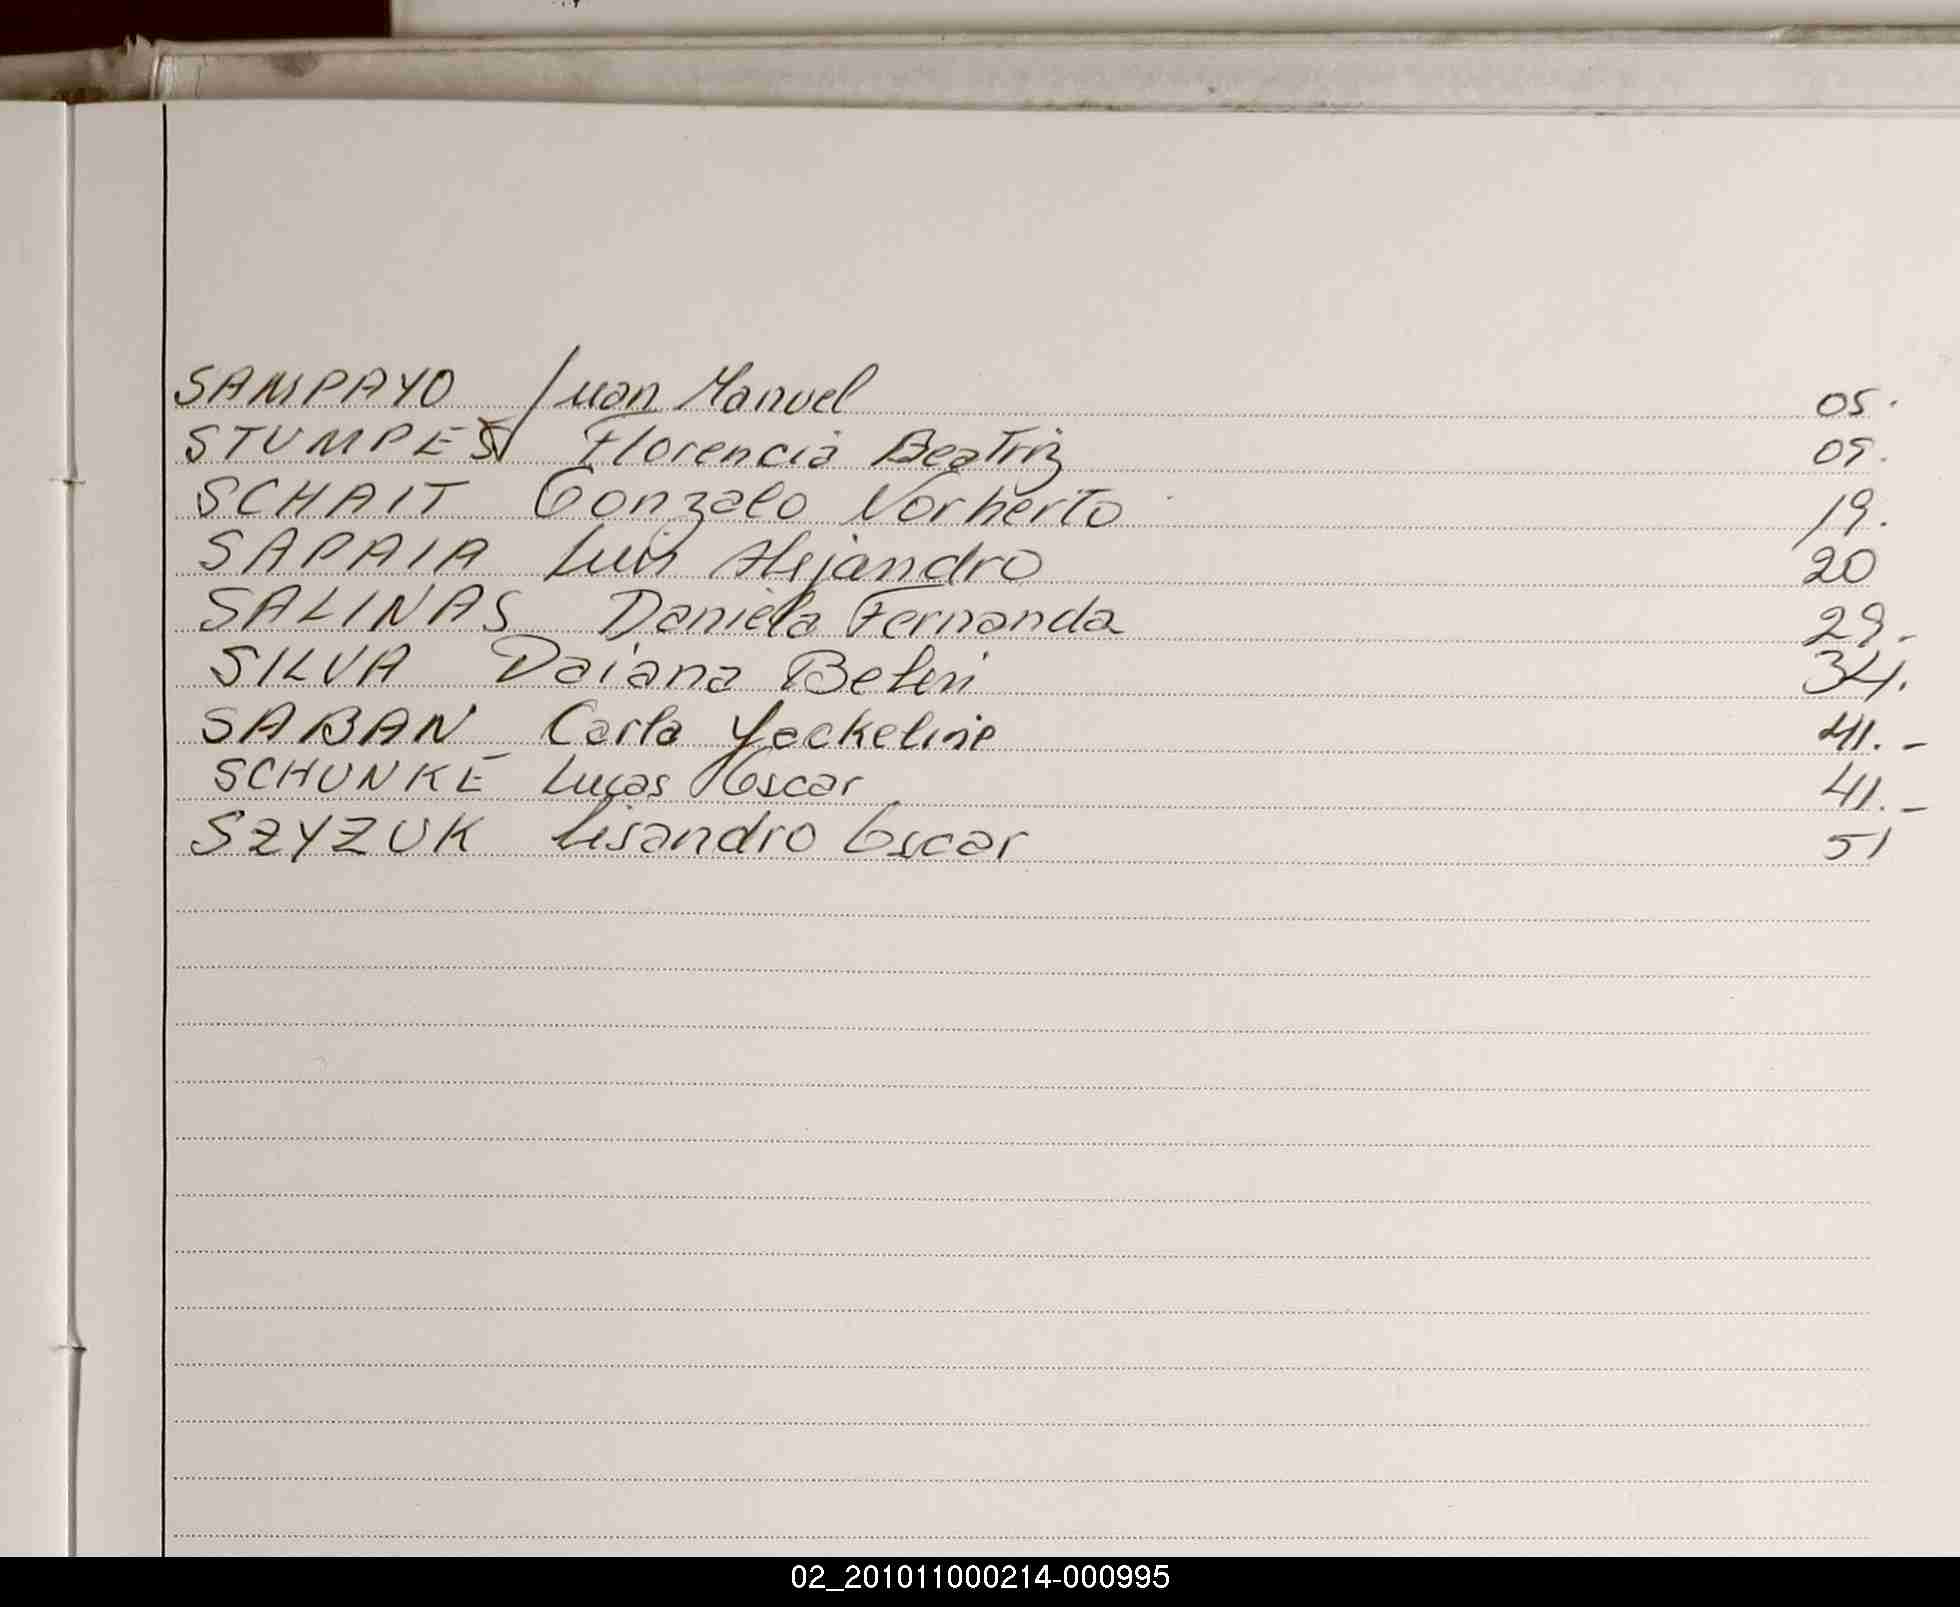 SAMPAYO Juan Manuel 05.
STUMPES Florencia Beatriz 05.
SCHAIT Gonzalo Norberto 19.
SAPAIA Luis Alejandro 20
SALINAS Daniela Fernanda 29.-
SILVA Daiana Belen 34.
SABAN Carla Yackeline 41.-
SCHUNKE Lucas Oscar 41.-
SZYZUK Lisandro Oscar 51
02_201011000214-000995